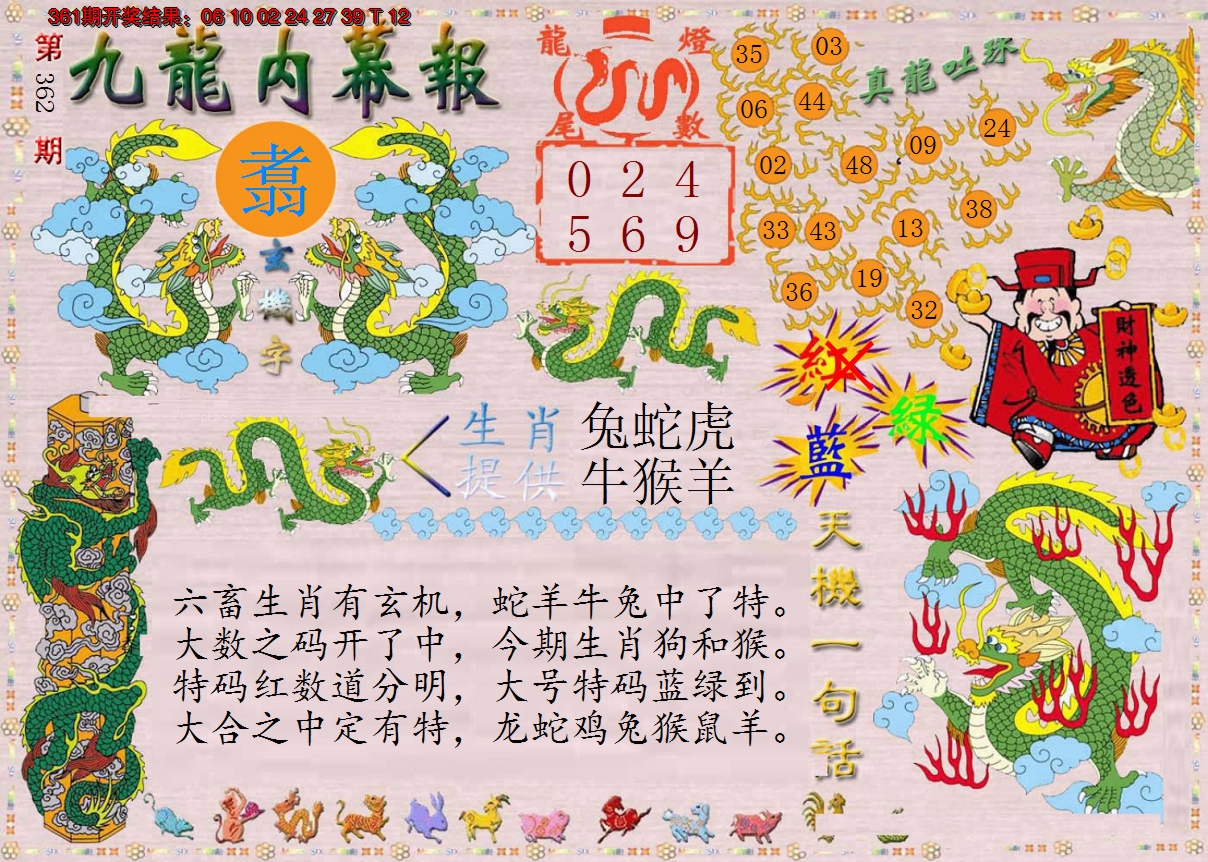 361期开奖结果：06 10 02 24 27 39 T 12
第362期
九龍内幕報
翥
玄機字
龍燈
尾數
0 2 4
5 6 9
真龍吐珠
35 03
06 44
02 48 09 24
33 43 13 38
36 19 32
財神透色
紅
绿
藍
生肖 兔蛇虎
提供 牛猴羊
天機一句话
六畜生肖有玄机，蛇羊牛兔中了特。
大数之码开了中，今期生肖狗和猴。
特码红数道分明，大号特码蓝绿到。
大合之中定有特，龙蛇鸡兔猴鼠羊。